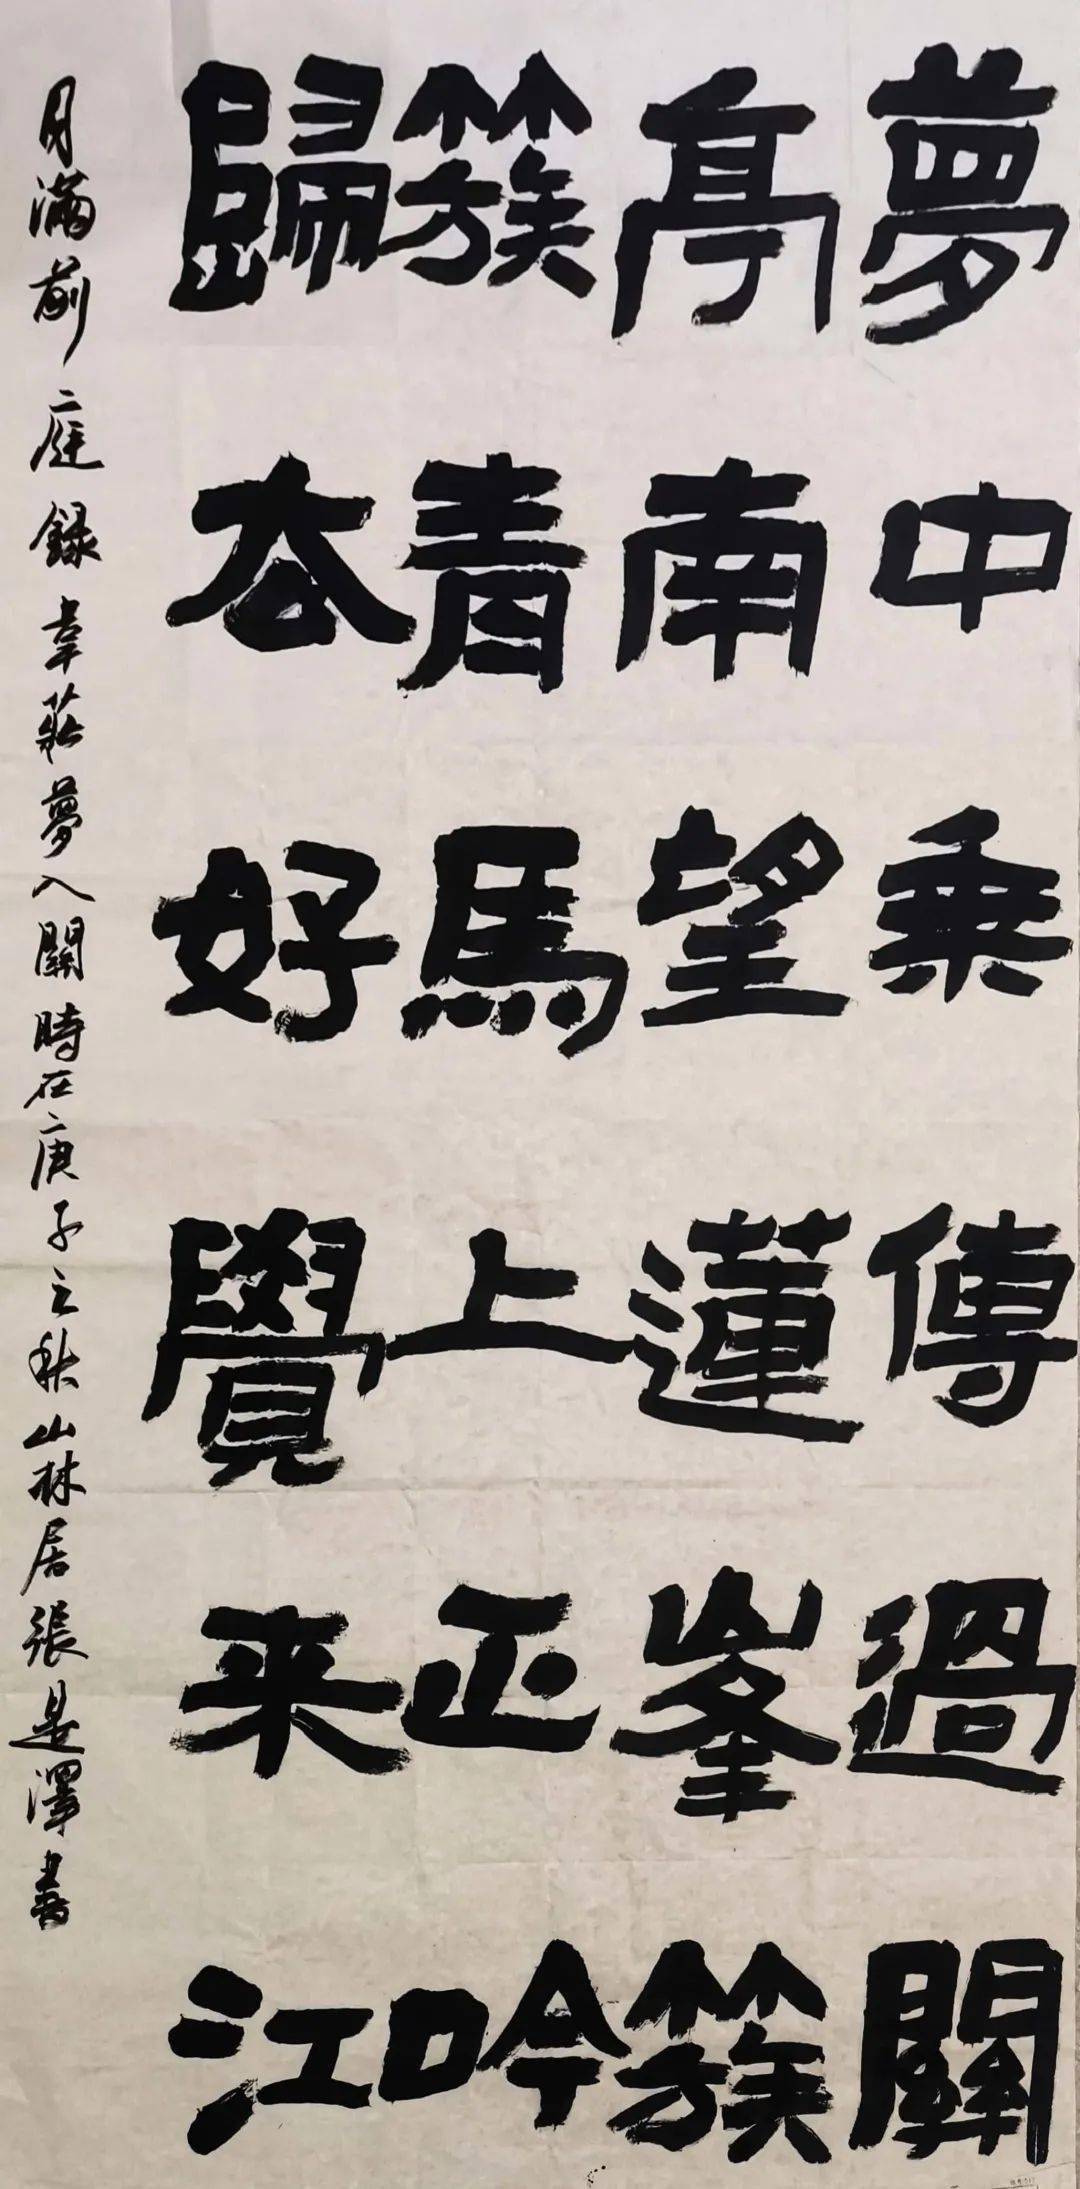 夢中乗傳過關
亭南望蓮峯簇
簇青馬上正吟
歸去好覺来江
月滿前庭録韋莊夢入關時在庚子之秋山林居張是澤書